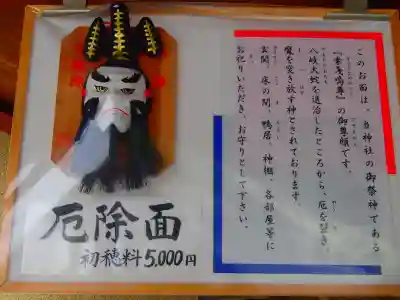 このお面は、当神社の御祭神である
『素戔嗚尊』の御尊顔です。
八岐大蛇を退治したところから、厄を堅き、
魔を突き放す神とされております。
玄関、床の間、鴨居、神棚、各部屋等に
お祀りいただき、お守りとして下さい。
厄除面
初穂料5,000円